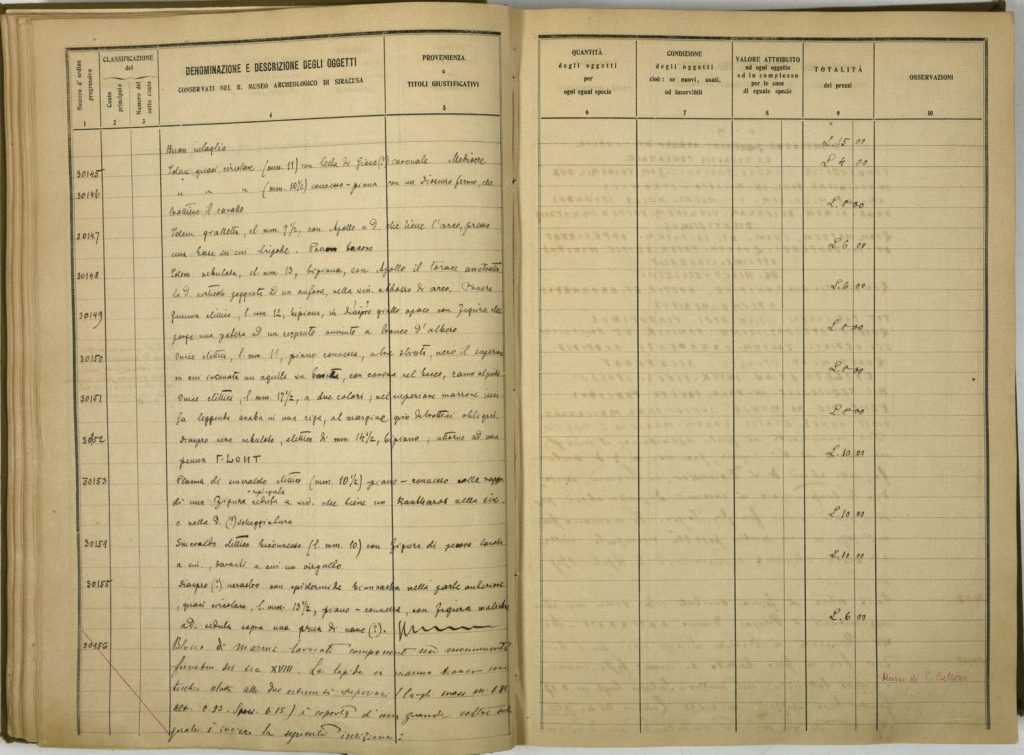 Numero d'ordine progressivo
CLASSIFICAZIONE
del
Conto principale
Numero del sotto conto
DENOMINAZIONE E DESCRIZIONE DEGLI OGGETTI
CONSERVATI NEL R. MUSEO ARCHEOLOGICO DI SIRACUSA
PROVENIENZA
e
TITOLI GIUSTIFICATIVI
1 2 3 4 5
Buon intaglio
30145 Idem quasi circolare (mm. 11) con testa di Giove (?) coronata. Mediocre
30146 " " " (mm. 10½) convesso-piana con un dioscuro fermo, che
trattiene il cavallo
30147 Idem gialletta, el. mm 9½, con Apollo a d. che tiene l'arco, presso
una base su cui tripode.
30148 Idem nebulosa, el. mm. 13, bipiana, con Apollo il torace
la d. poggiata ad un nella sin. di arco.
30149 Gemma ellittica, l. mm. 12, bipiana, in diaspro giallo opaco con figura che
porge una patera ad un serpente avvinto a tronco d'albero
30150 Onice ellittica, l. mm. 11, piano convessa, nero il superiore
in cui incavata un aquila su con corona nel becco, ramo
30151 Onice ellittica, l. mm. 17½, a due colori; nel superiore marrone
leggenda araba in una riga, al margine giro di trattini obliqui
30152 Diaspro nero nebuloso, ellittico di mm. 14½, bipiano; attorno ad una
penna Γ. LONT
30153 Plasma di smeraldo ellittico (mm. 10½) piano-convesso colla
di una figura seduta a sin. che tiene un Kantharos nella sin.
e nella d. (?) scheggiatura
30154 Smeraldo ellittico biconvesso (l. mm. 10) con figura di
a sin., davanti a cui un virgulto
30155 Diaspro (?) nerastro con epidermide biancastra nella parte anteriore
, quasi circolare, l. mm. 13½, piano-convessa, con figura
ad. seduta sopra una prua di nave (?).
30156 Blocco di marmi lavorati componenti un monumento
funebre del sec. XVIII. La lapide in marmo bianco con
alle due estremità superiori (largh. mass. m. 1.85
alt. 0.93. Spess. 0.15) è coperta d'una grande coltre
quale è incisa la seguente iscrizione:
QUANTITÀ
degli oggetti
per
ogni egual specie
CONDIZIONE
degli oggetti
cioè: se nuovi, usati,
od inservibili
VALORE ATTRIBUITO
ad ogni oggetto
ed in complesso
per le cose
di eguale specie
TOTALITÀ
dei prezzi
OSSERVAZIONI
6 7 8 9 10
L. 15 00
L. 4 00
L. 5 00
L. 6 00
L. 6 00
L. 5 00
L. 5 00
L. 5 00
L. 10 00
L. 10 00
L. 10 00
L. 6 00
Museo di P. Bellomo